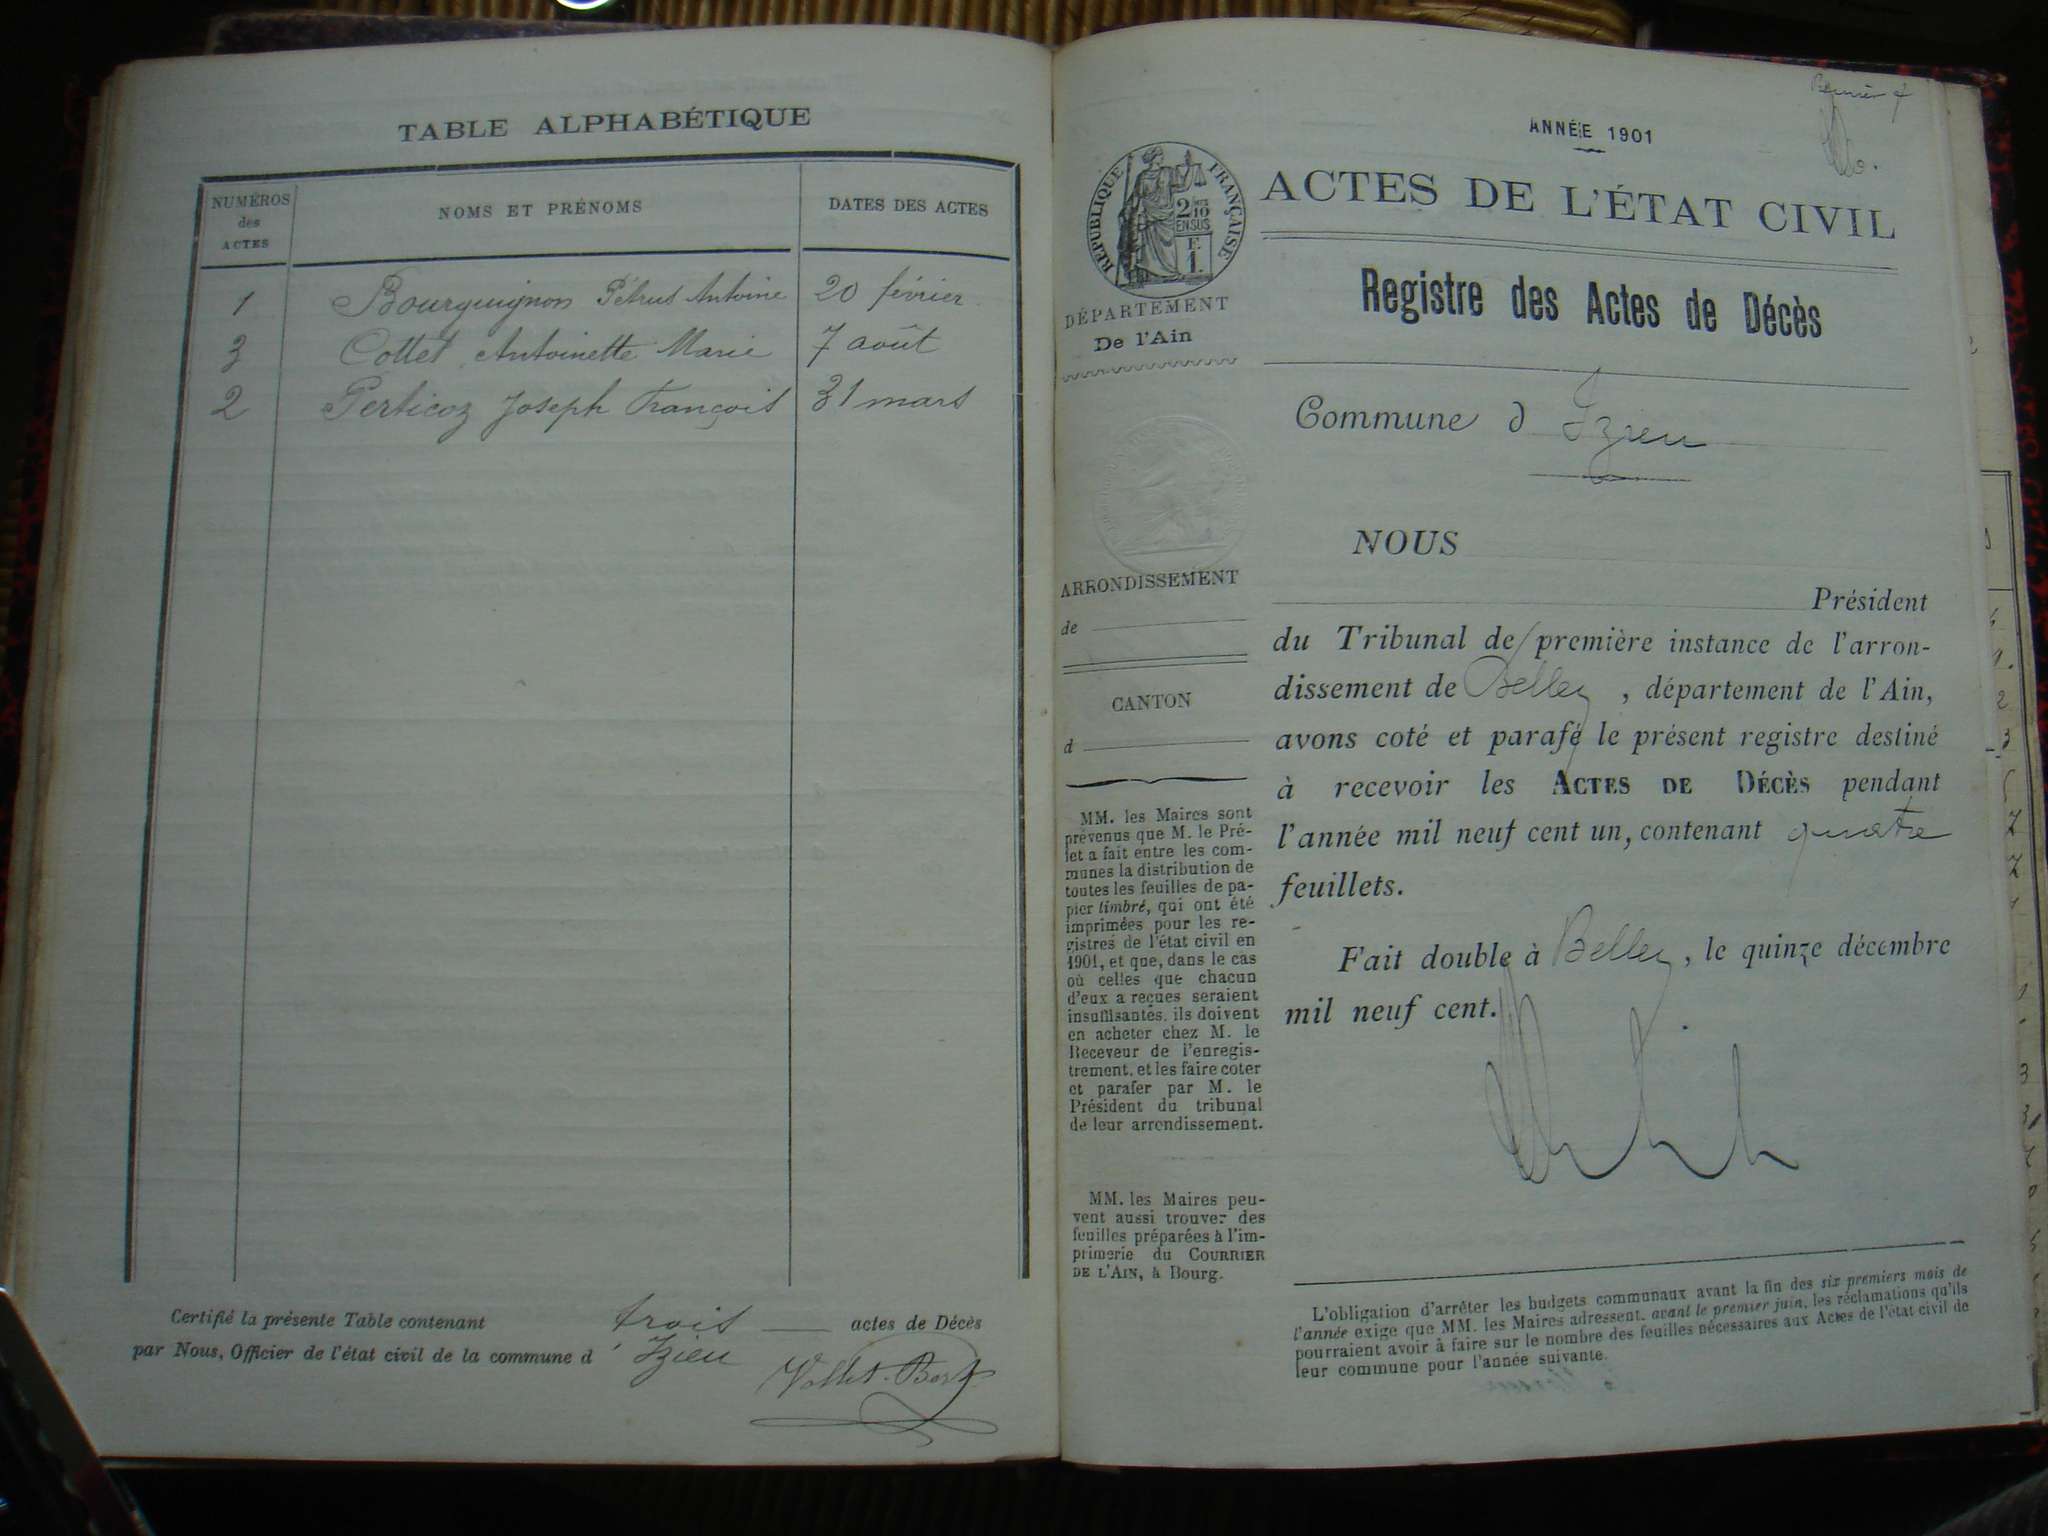 TABLE ALPHABÉTIQUE
NUMÉROS des ACTES
NOMS ET PRÉNOMS
DATES DES ACTES
1 Bourguignon Pétrus Antoine 20 février
3 Collet Antoinette Marie 7 août
2 Perticoz Joseph François 31 mars
Certifié la présente Table contenant trois actes de Décès
par Nous, Officier de l'état civil de la commune d'Izieu
Premier
ANNÉE 1901
RÉPUBLIQUE FRANÇAISE
2/10
EN SUS
F.
1.
ACTES DE L'ÉTAT CIVIL
DÉPARTEMENT
De l'Ain
Registre des Actes de Décès
Commune d Izieu
ARRONDISSEMENT
de
CANTON
d
MM. les Maires sont
prévenus que M. le Pré-
fet a fait entre les com-
munes la distribution de
toutes les feuilles de pa-
pier timbré, qui ont été
imprimées pour les re-
gistres de l'état civil en
1901, et que, dans le cas
où celles que chacun
d'eux a reçues seraient
insuffisantes, ils doivent
en acheter chez M. le
Receveur de l'enregis-
trement, et les faire coter
et parafer par M. le
Président du tribunal
de leur arrondissement.
MM. les Maires peu-
vent aussi trouver des
feuilles préparées à l'im-
primerie du COURRIER
DE L'AIN, à Bourg.
NOUS
Président
du Tribunal de première instance de l'arron-
dissement de Belley, département de l'Ain,
avons coté et parafé le présent registre destiné
à recevoir les ACTES DE DÉCÈS pendant
l'année mil neuf cent un, contenant quatre
feuillets.
Fait double à Belley, le quinze décembre
mil neuf cent.
L'obligation d'arrêter les budgets communaux avant la fin des six premiers mois de
l'année exige que MM. les Maires adressent, avant le premier juin, les réclamations qu'ils
pourraient avoir à faire sur le nombre des feuilles nécessaires aux Actes de l'état civil de
leur commune pour l'année suivante.